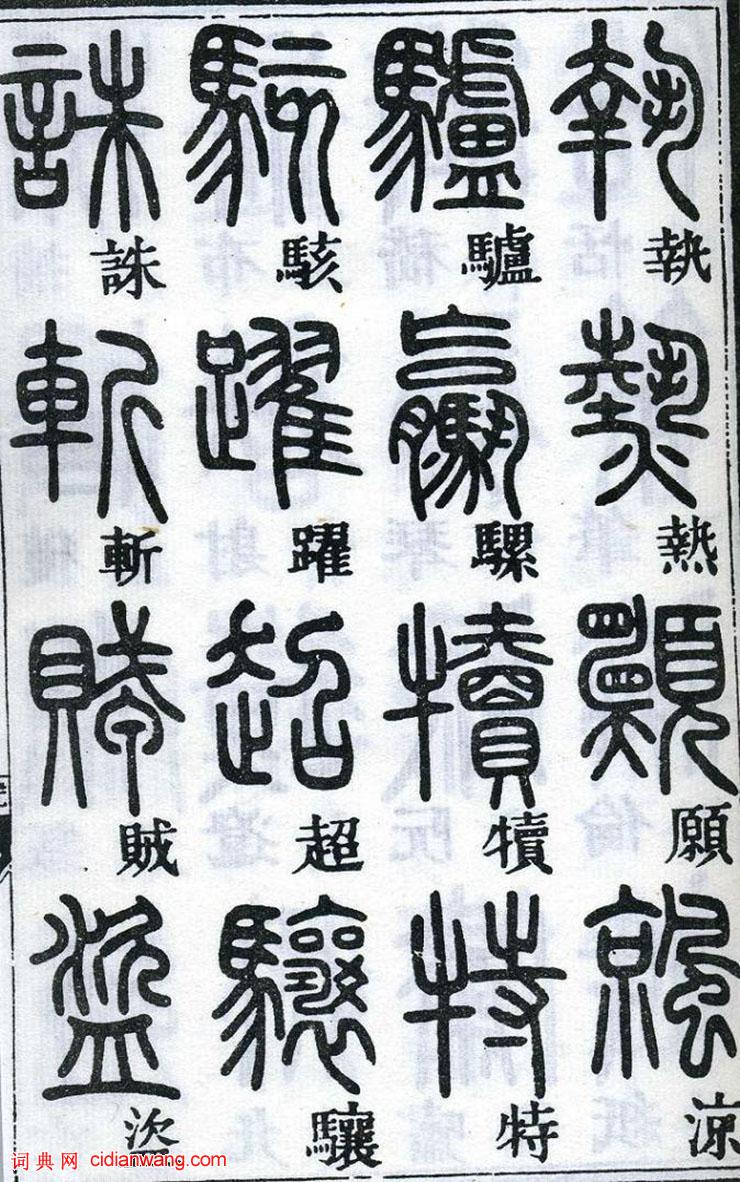 執熱願涼
驢騾犢特
駭躍超驤
誅斬賊盜
词典网 cidianwang.com